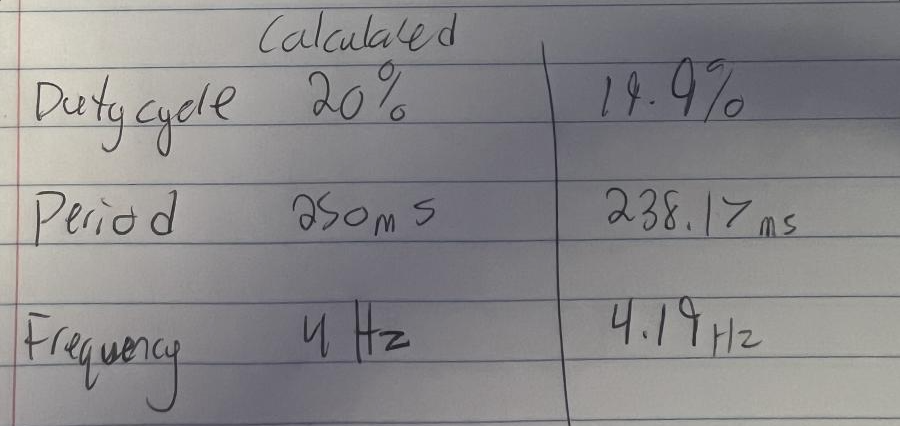 Calculated
Duty cycle 20% 19.9%
Period 250ms 238.17ms
Frequency 4 Hz 4.19Hz